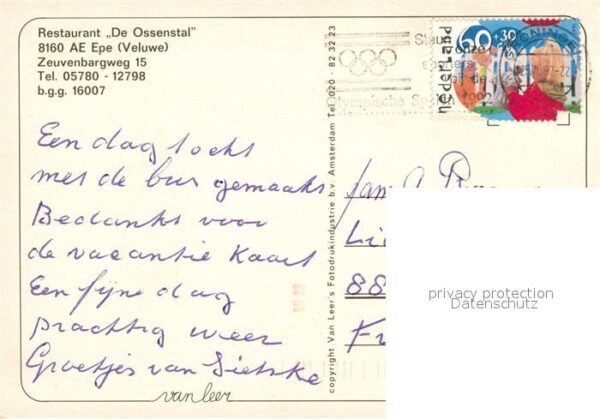 Restaurant „De Ossenstal"
8160 AE Epe (Veluwe)
Zeuvenbargweg 15
Tel. 05780 - 12798
b.g.g. 16007
Een dag tocht
met de bus gemaakt
Bedankt voor
de vacantie Kaart
Een fijne dag
prachtig weer
Groetjes van Sietske
van leer
copyright Van Leer's Fotodrukindustrie b.v. Amsterdam Tel. 020 - 82 32 23
Steun
onze
Olympische
nederland
60 +30
GRONINGEN
Fam.
Li
88
F
privacy protection
Datenschutz